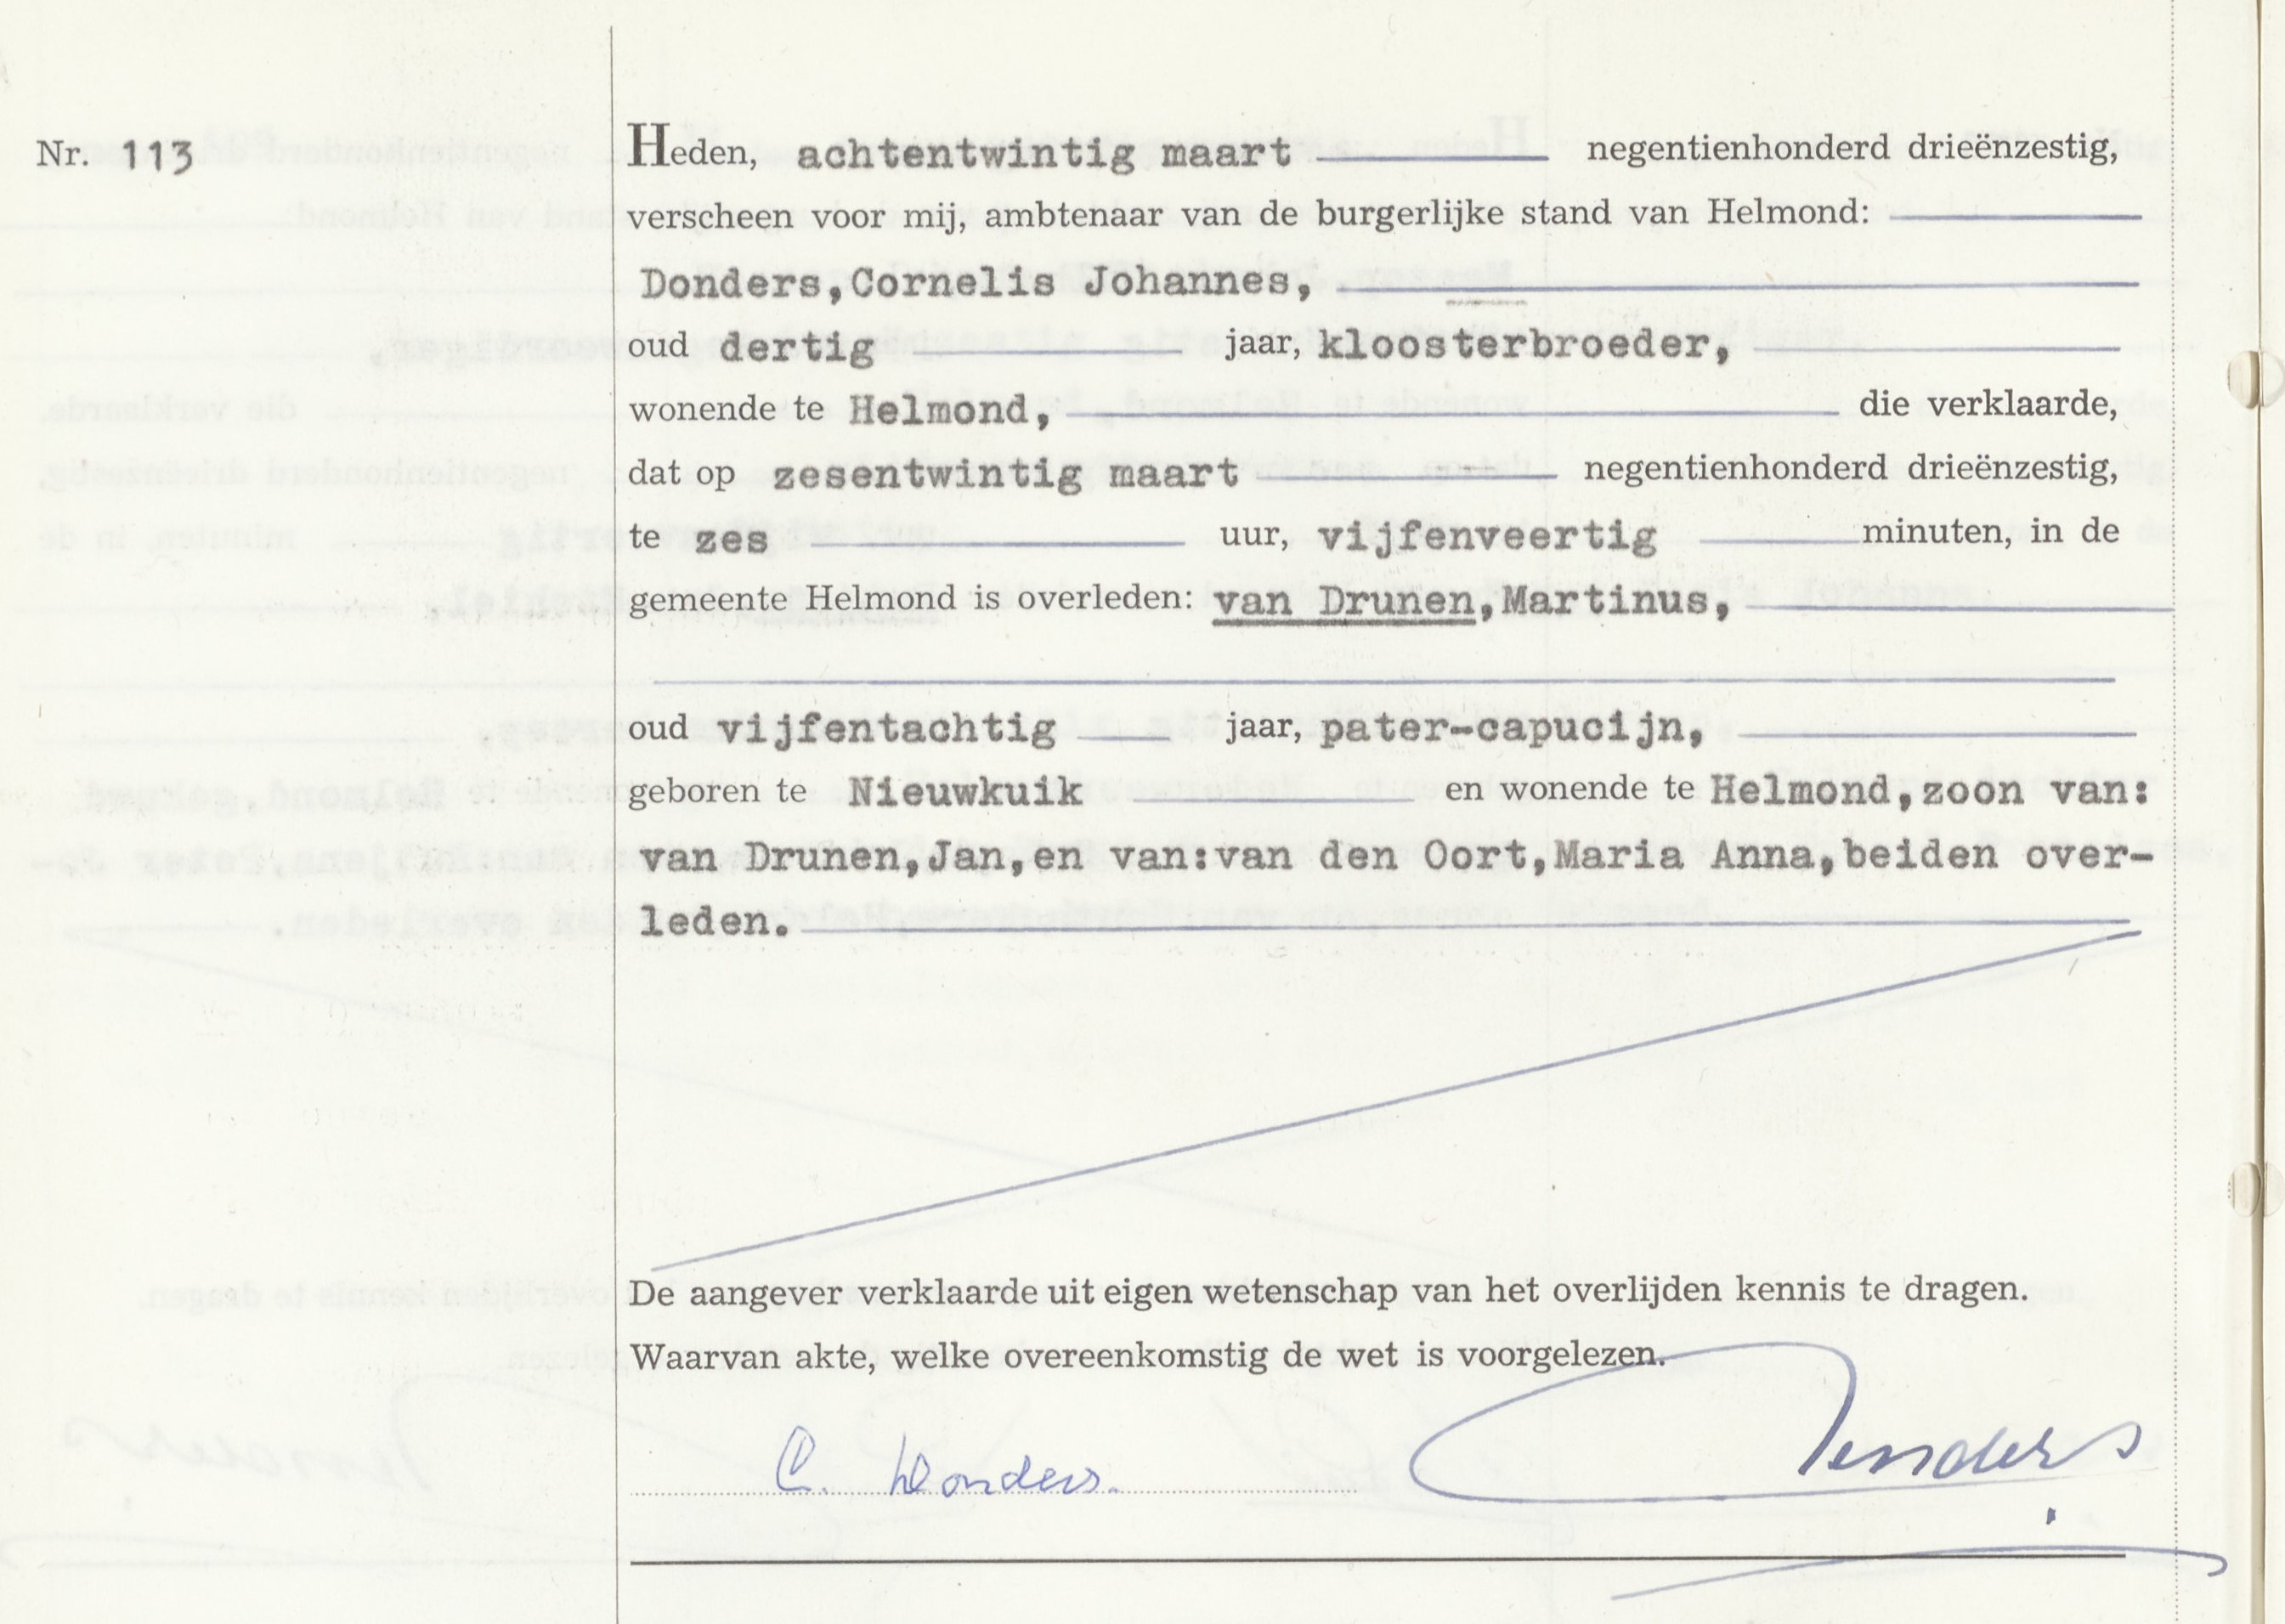 Nr. 113
Heden, achtentwintig maart negentienhonderd drieënzestig,
verscheen voor mij, ambtenaar van de burgerlijke stand van Helmond:
Donders,Cornelis Johannes,
oud dertig jaar, kloosterbroeder,
wonende te Helmond, die verklaarde,
dat op zesentwintig maart negentienhonderd drieënzestig,
te zes uur, vijfenveertig minuten, in de
gemeente Helmond is overleden: van Drunen,Martinus,
oud vijfentachtig jaar, pater-capucijn,
geboren te Nieuwkuik en wonende te Helmond,zoon van:
van Drunen,Jan,en van:van den Oort,Maria Anna,beiden over-
leden.
De aangever verklaarde uit eigen wetenschap van het overlijden kennis te dragen.
Waarvan akte, welke overeenkomstig de wet is voorgelezen.
C. Donders.